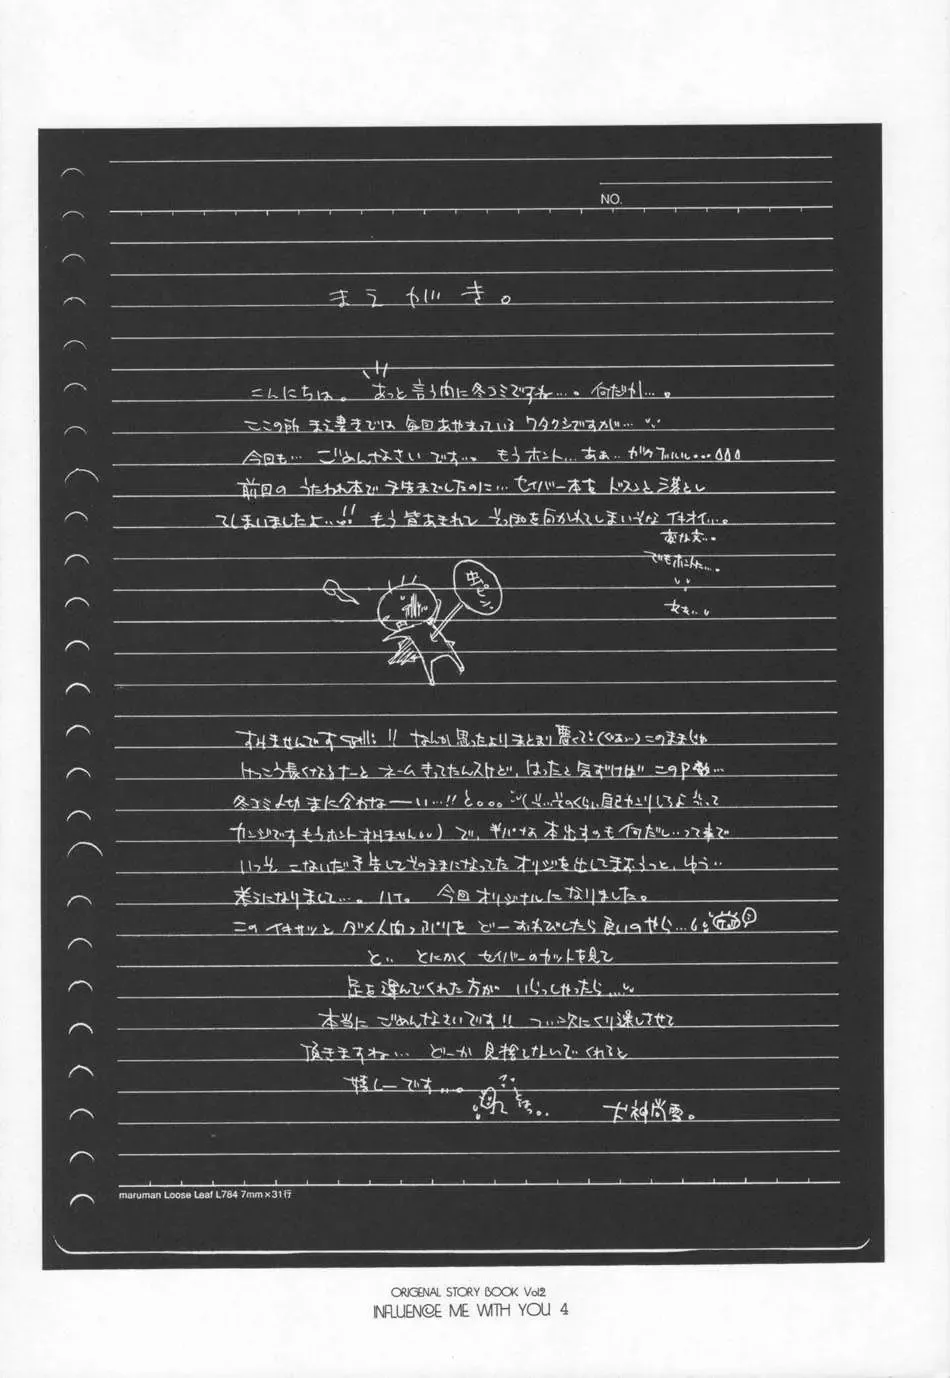 NO.
まえがき。
こんにちは。あっと言う間に冬コミですね…。何だか…。
ここの所 まえ書きでは 毎回あやまっている ワタクシですが…
今回も… ごめんなさいです… もうホント… あぁ… ガクブルルル…
前回の うたわれ本で 予告までしたのに… セイバー本を ドスンと落とし
てしまいましたよ…!! もう皆あきれて そっぽを向かれてしまいそな イキオイ…。
変な文…。
でもホントに…。
虫ピン。
すみませんです !! なんか思ったよりまとまり悪くて (ぐぁぃ) このままじゃ
けっこう長くなるなーと ネームきってたんスけど、はったと気づけば このP数…
冬コミ〆切 まに合わなーい…!! と。。。 (そ…そのくらい自己カンリしろよ って
カンジです もうホント すみません) で、半パな 本出すのも何だし…って事で
いっそ こないだ予告してそのままになってた オリジを出してまおうっと、ゆう
考えになりまして…。ハイ。 今回オリジナルになりました。
この イキサツと ダメ人間っプリを どーおわびしたら良いのやら…
と、 とにかく セイバーのカットを見て
足を運んでくれた方が いらっしゃったら…
本当に ごめんなさいです!! つ、次にくり越しさせて
頂きますね… どーか 見捨てないでくれると
嬉しーです…。
犬神尚雪。
maruman Loose Leaf L784 7mm×31行
ORIGENAL STORY BOOK Vol2
INFLUENCE ME WITH YOU 4